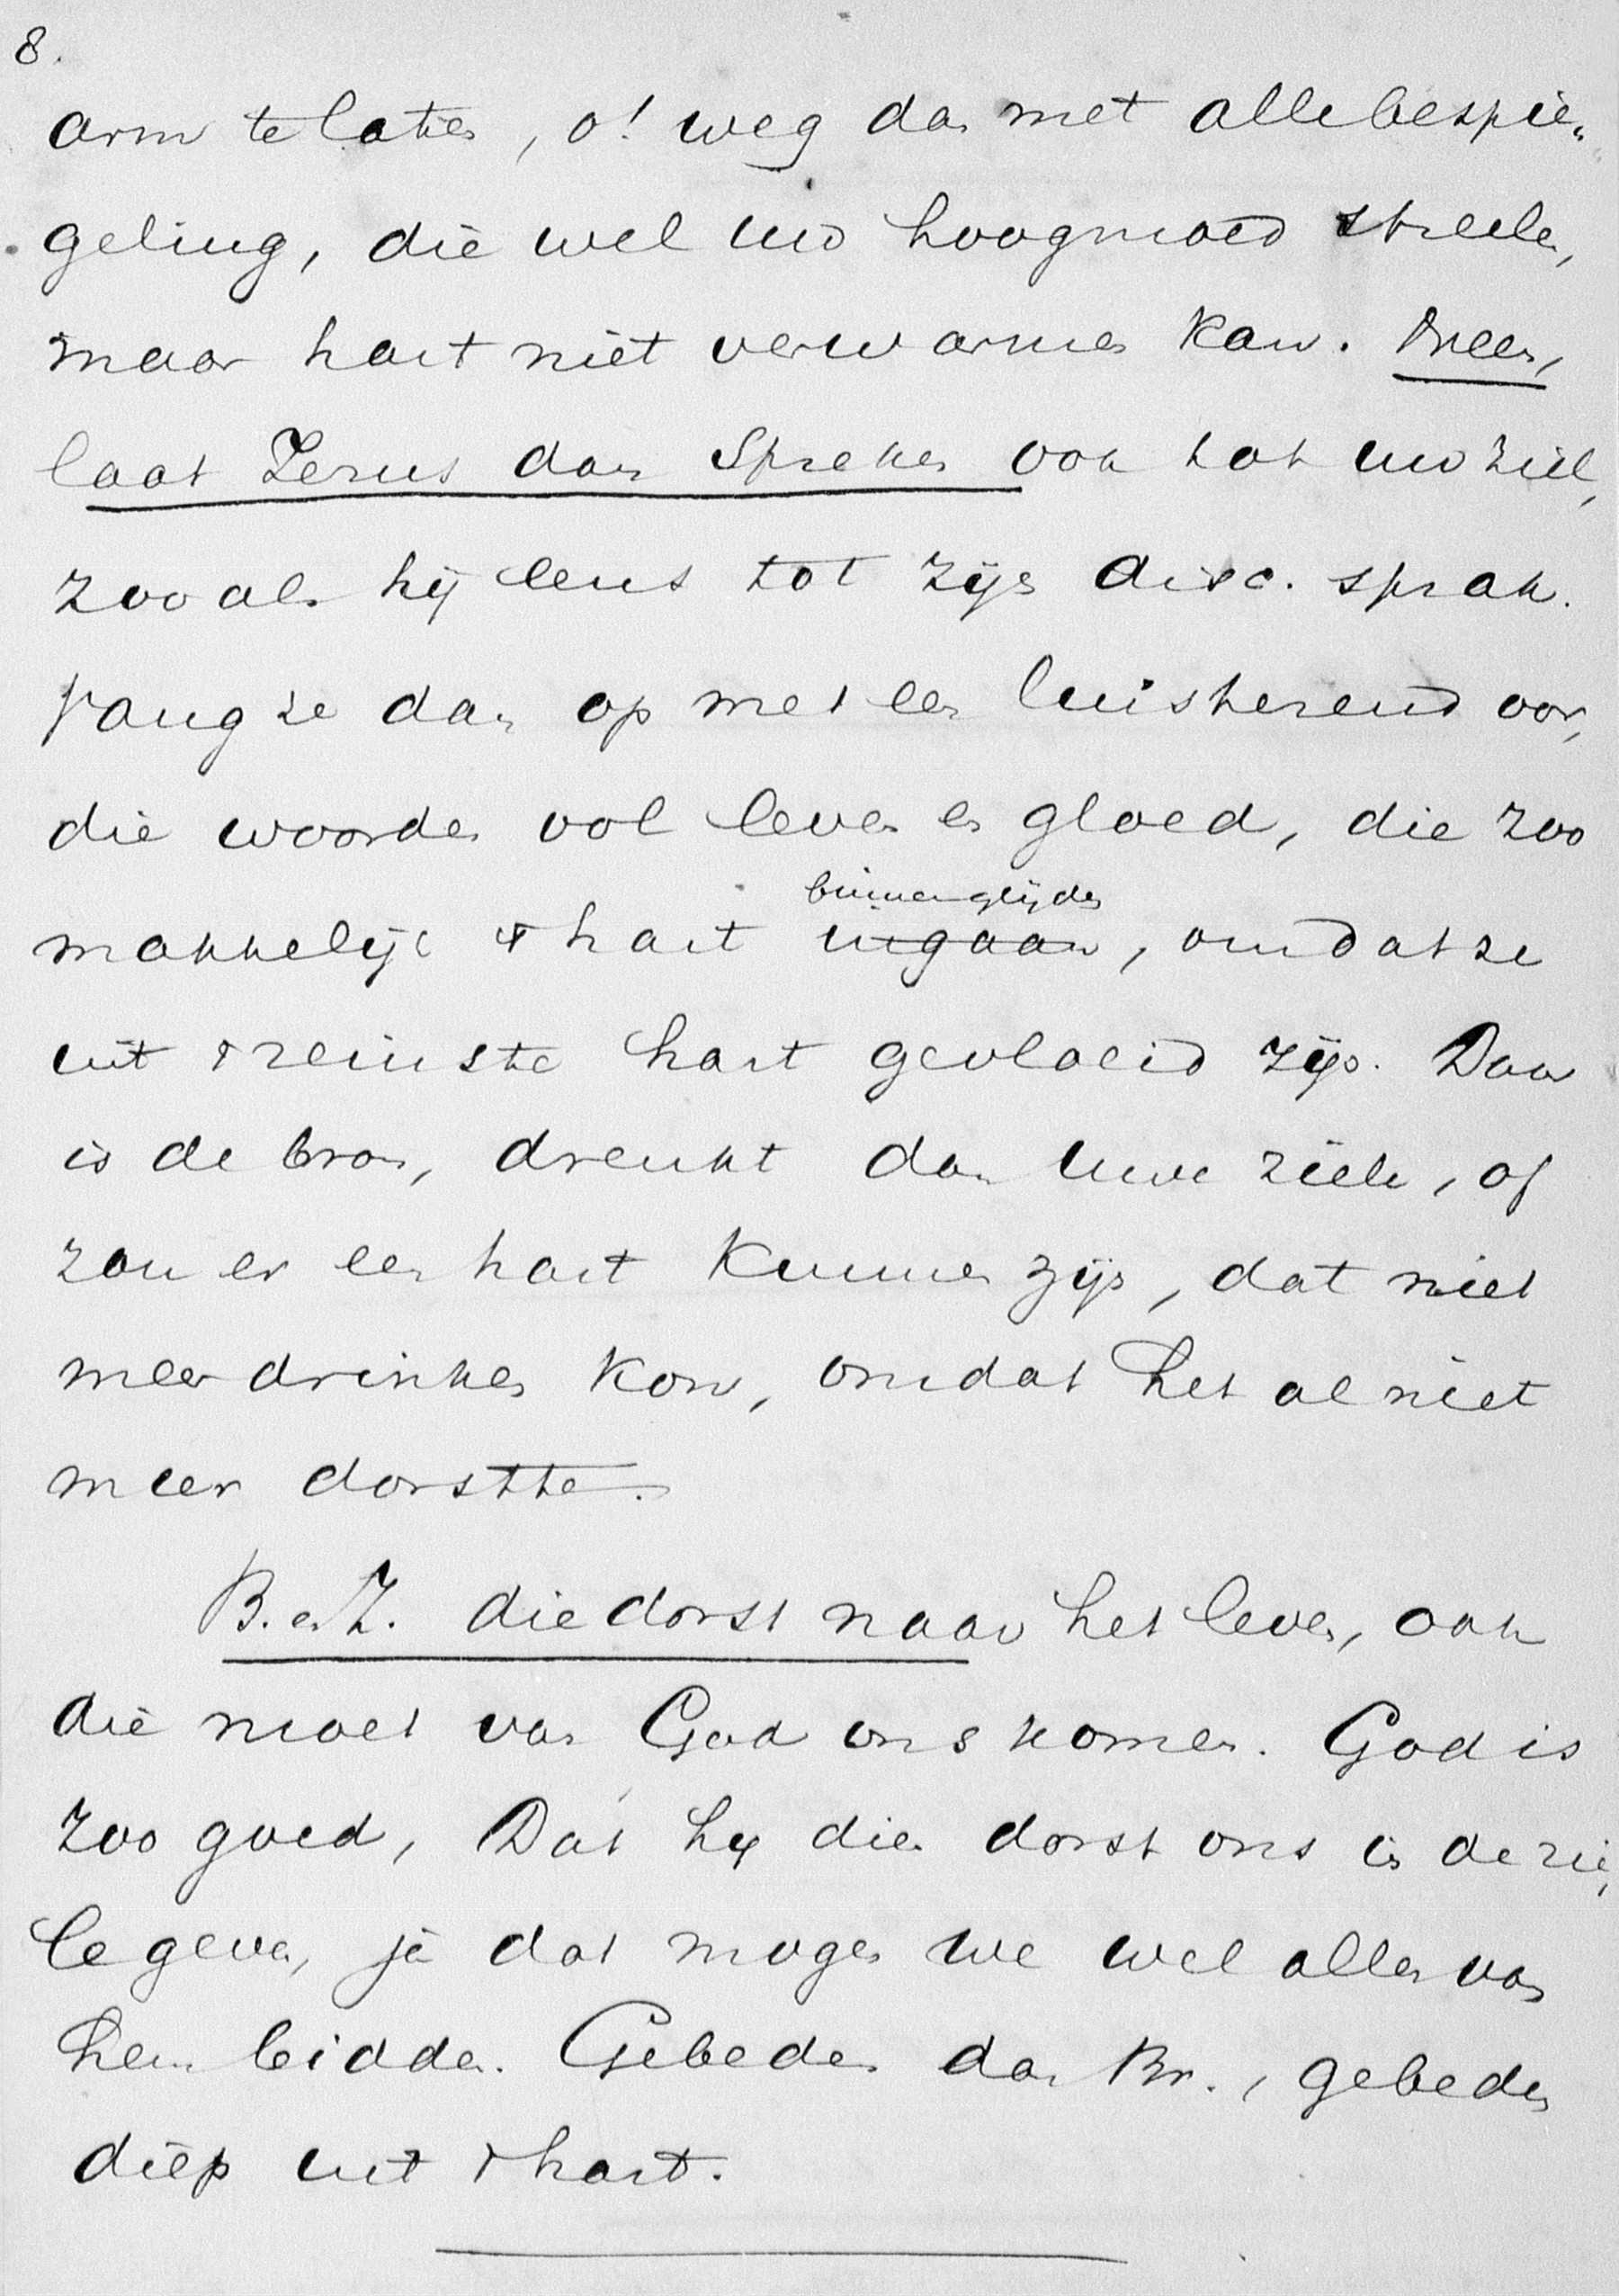 8.
arm te laten, o! weg dan met alle bespie„
geling, die wel uw hoogmoed streelen,
maar hart niet verwarmen kan. Neen,
laat Jezus dan spreken ook tot uw ziel,
zooals hij eens tot zijn disc. sprak.
Vang ze dan op met een luisterend oor,
die woorden vol leven en gloed, die zoo
makkelijk 't hart ingaan binnenglijden, omdat ze
uit 't reinste hart gevloeid zijn. Daar
is de bron, drenkt dan uwe ziele, of
zou er een hart kunnen zijn, dat niet
meer drinken kon, omdat het al niet
meer dorstte.
B. en Z. die dorst naar het leven, ook
die moet van God ons komen. God is
zoo goed, Dat hij dien dorst ons in de zie„
le geven, ja dat mogen we wel allen van
hem bidden. Gebeden dan Br., gebeden
diep uit 't hart.